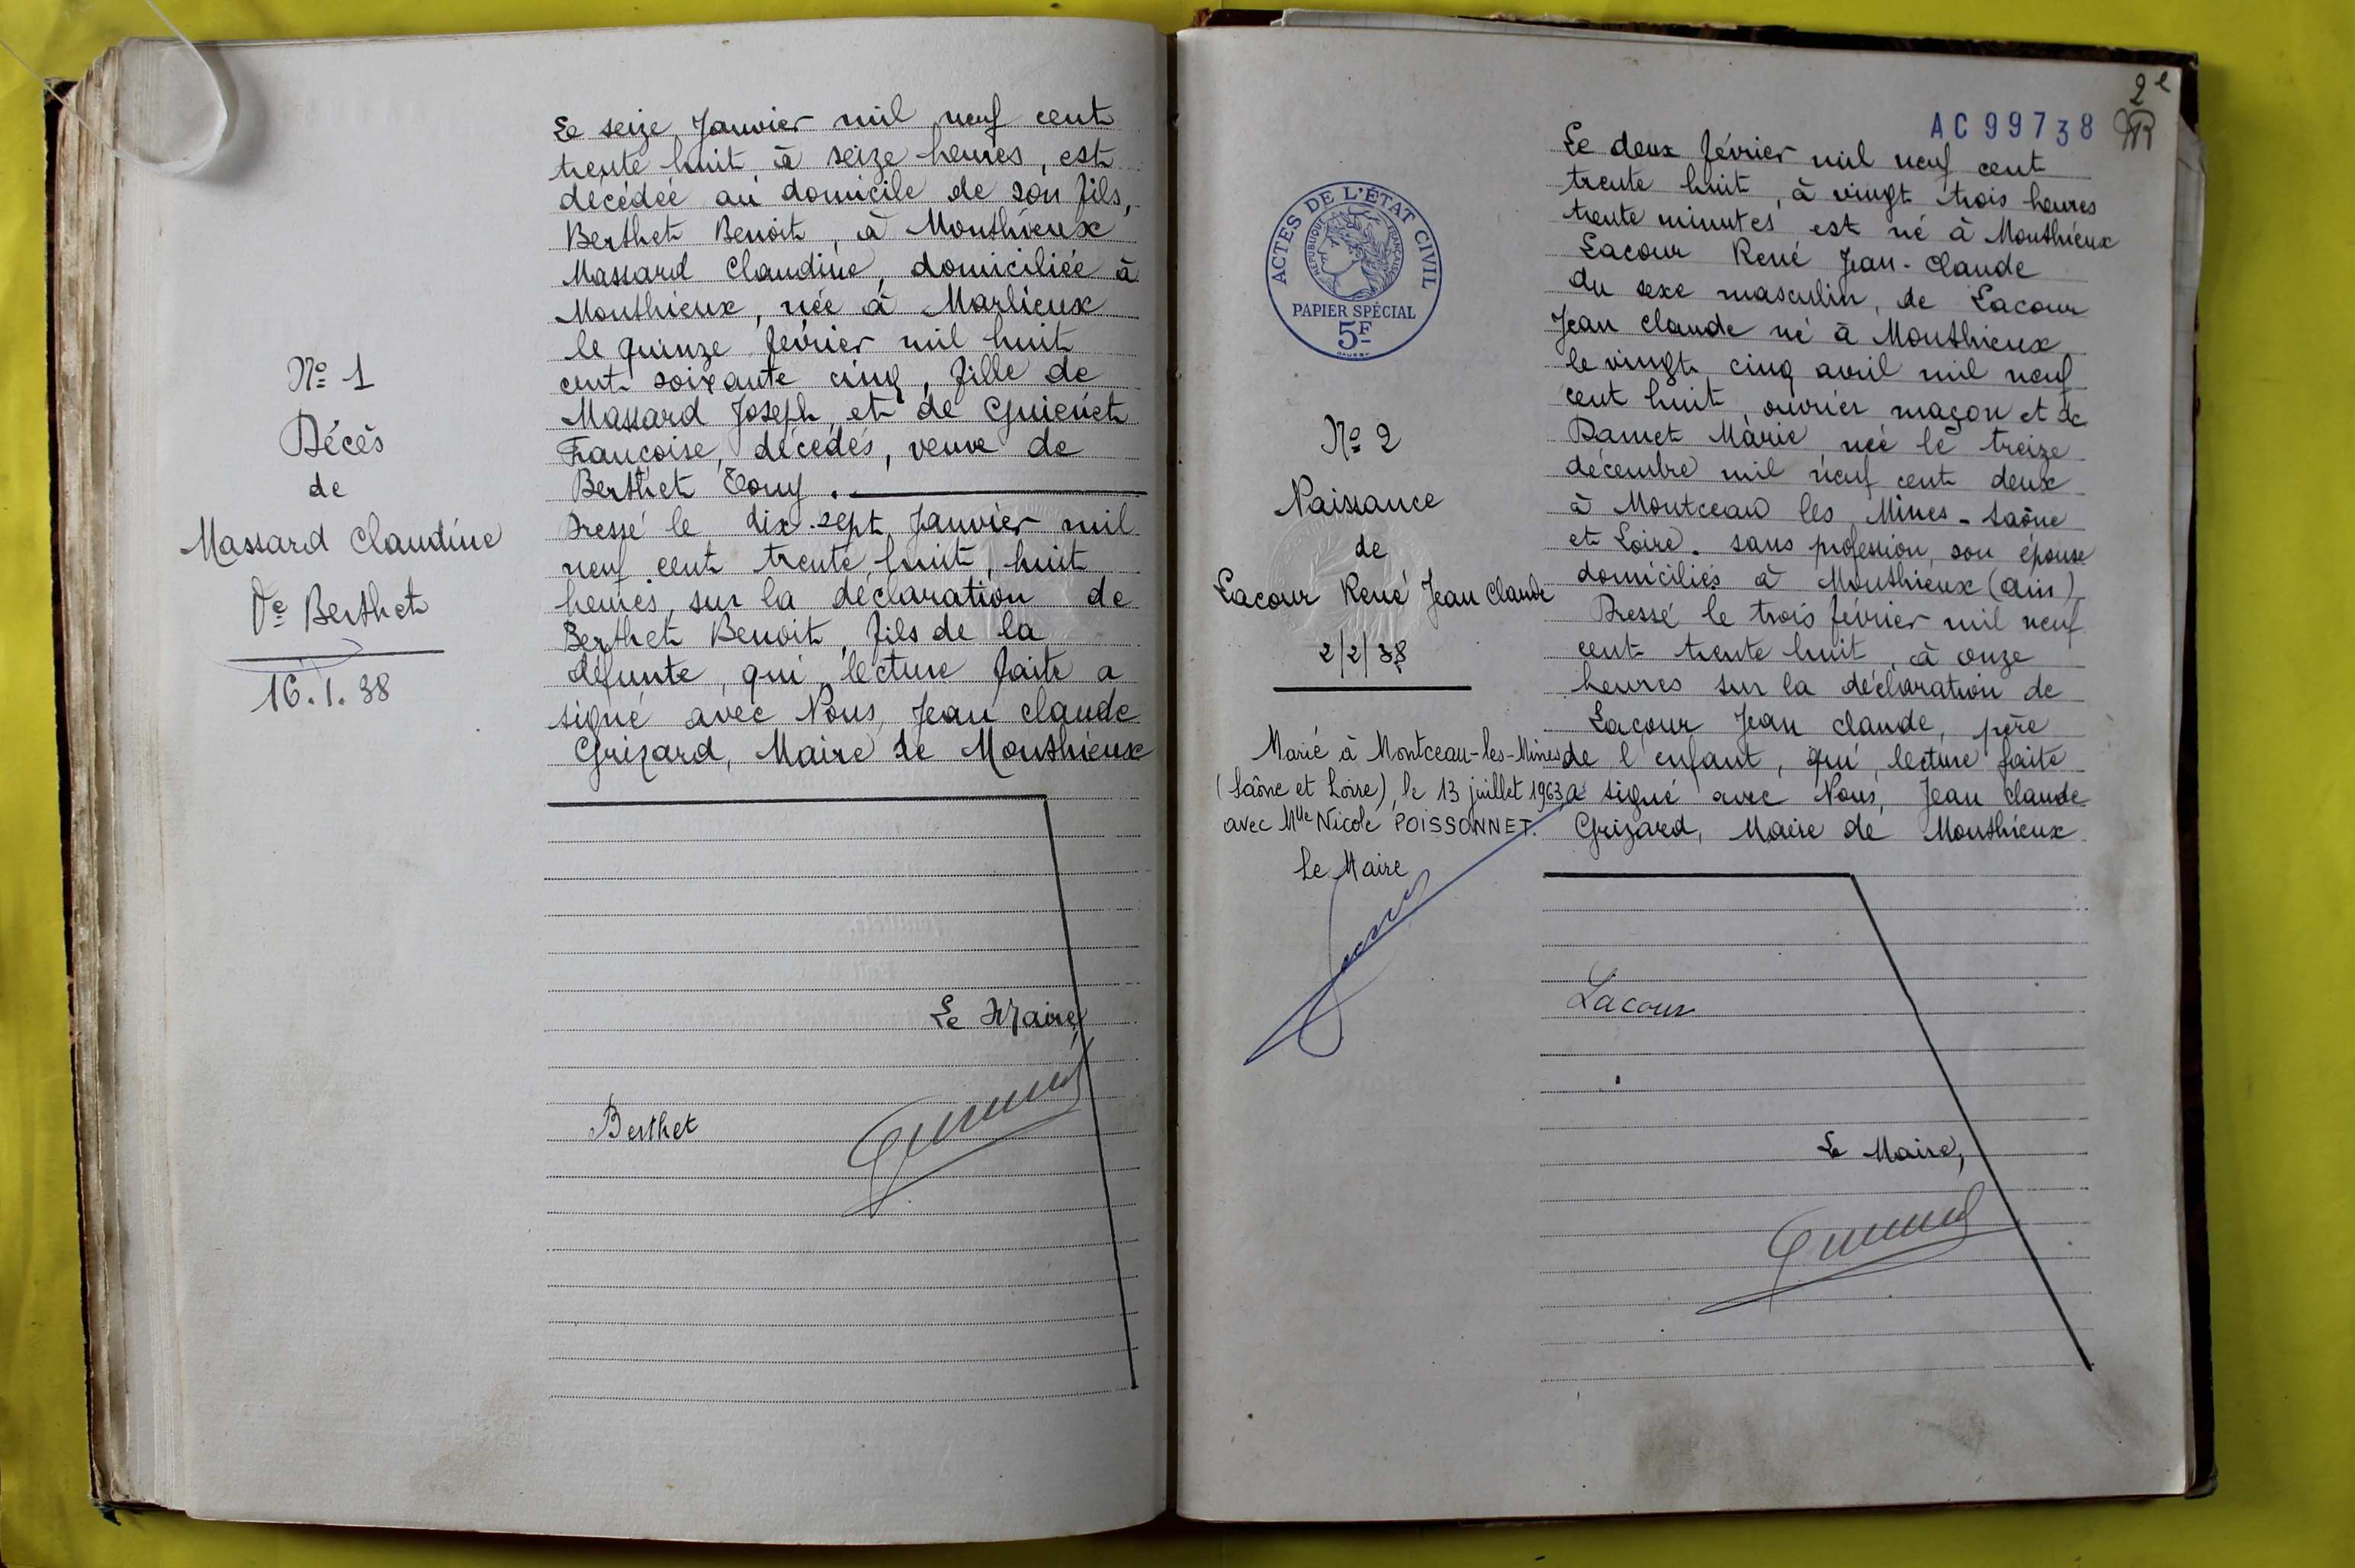 Nº 1
Décès
de
Massard Claudine
Vᵉ Berthet
16.1.38
Le seize Janvier mil neuf cent
trente huit à seize heures, est
décédée au domicile de son fils,
Berthet Benoit, à Monthieux
Massard Claudine, domiciliée à
Monthieux, née à Marlieux
le quinze février mil huit
cent soixante cinq, fille de
Massard Joseph et de Guichet
Françoise, décédés, veuve de
Berthet Tony.
Dressé le dix-sept Janvier mil
neuf cent trente huit, huit
heures, sur la déclaration de
Berthet Benoit, fils de la
défunte, qui, lecture faite a
signé avec Nous, Jean Claude
Grizard, Maire de Monthieux
Le Maire
Berthet
2e
AC99738
ACTES DE L'ÉTAT CIVIL
RÉPUBLIQUE FRANÇAISE
PAPIER SPÉCIAL
5F
Nº 2
Naissance
de
Lacour René Jean Claude
2/2/38
Marié à Montceau-les-Mines
(Saône et Loire), le 13 juillet 1963
avec Mlle Nicole POISSONNET.
Le Maire
Le deux février mil neuf cent
trente huit, à vingt trois heures
trente minutes est né à Monthieux
Lacour René Jean-Claude
du sexe masculin, de Lacour
Jean Claude né à Monthieux
le vingt cinq avril mil neuf
cent huit, ouvrier maçon et de
Damet Marie, née le treize
décembre mil neuf cent deux
à Montceau les Mines - Saône
et Loire. sans profession, son épouse
domiciliés à Monthieux (Ain)
Dressé le trois février mil neuf
cent trente huit, à onze
heures sur la déclaration de
Lacour Jean Claude, père
de l'enfant, qui, lecture faite
a signé avec Nous, Jean Claude
Grizard, Maire de Monthieux
Lacour
Le Maire,